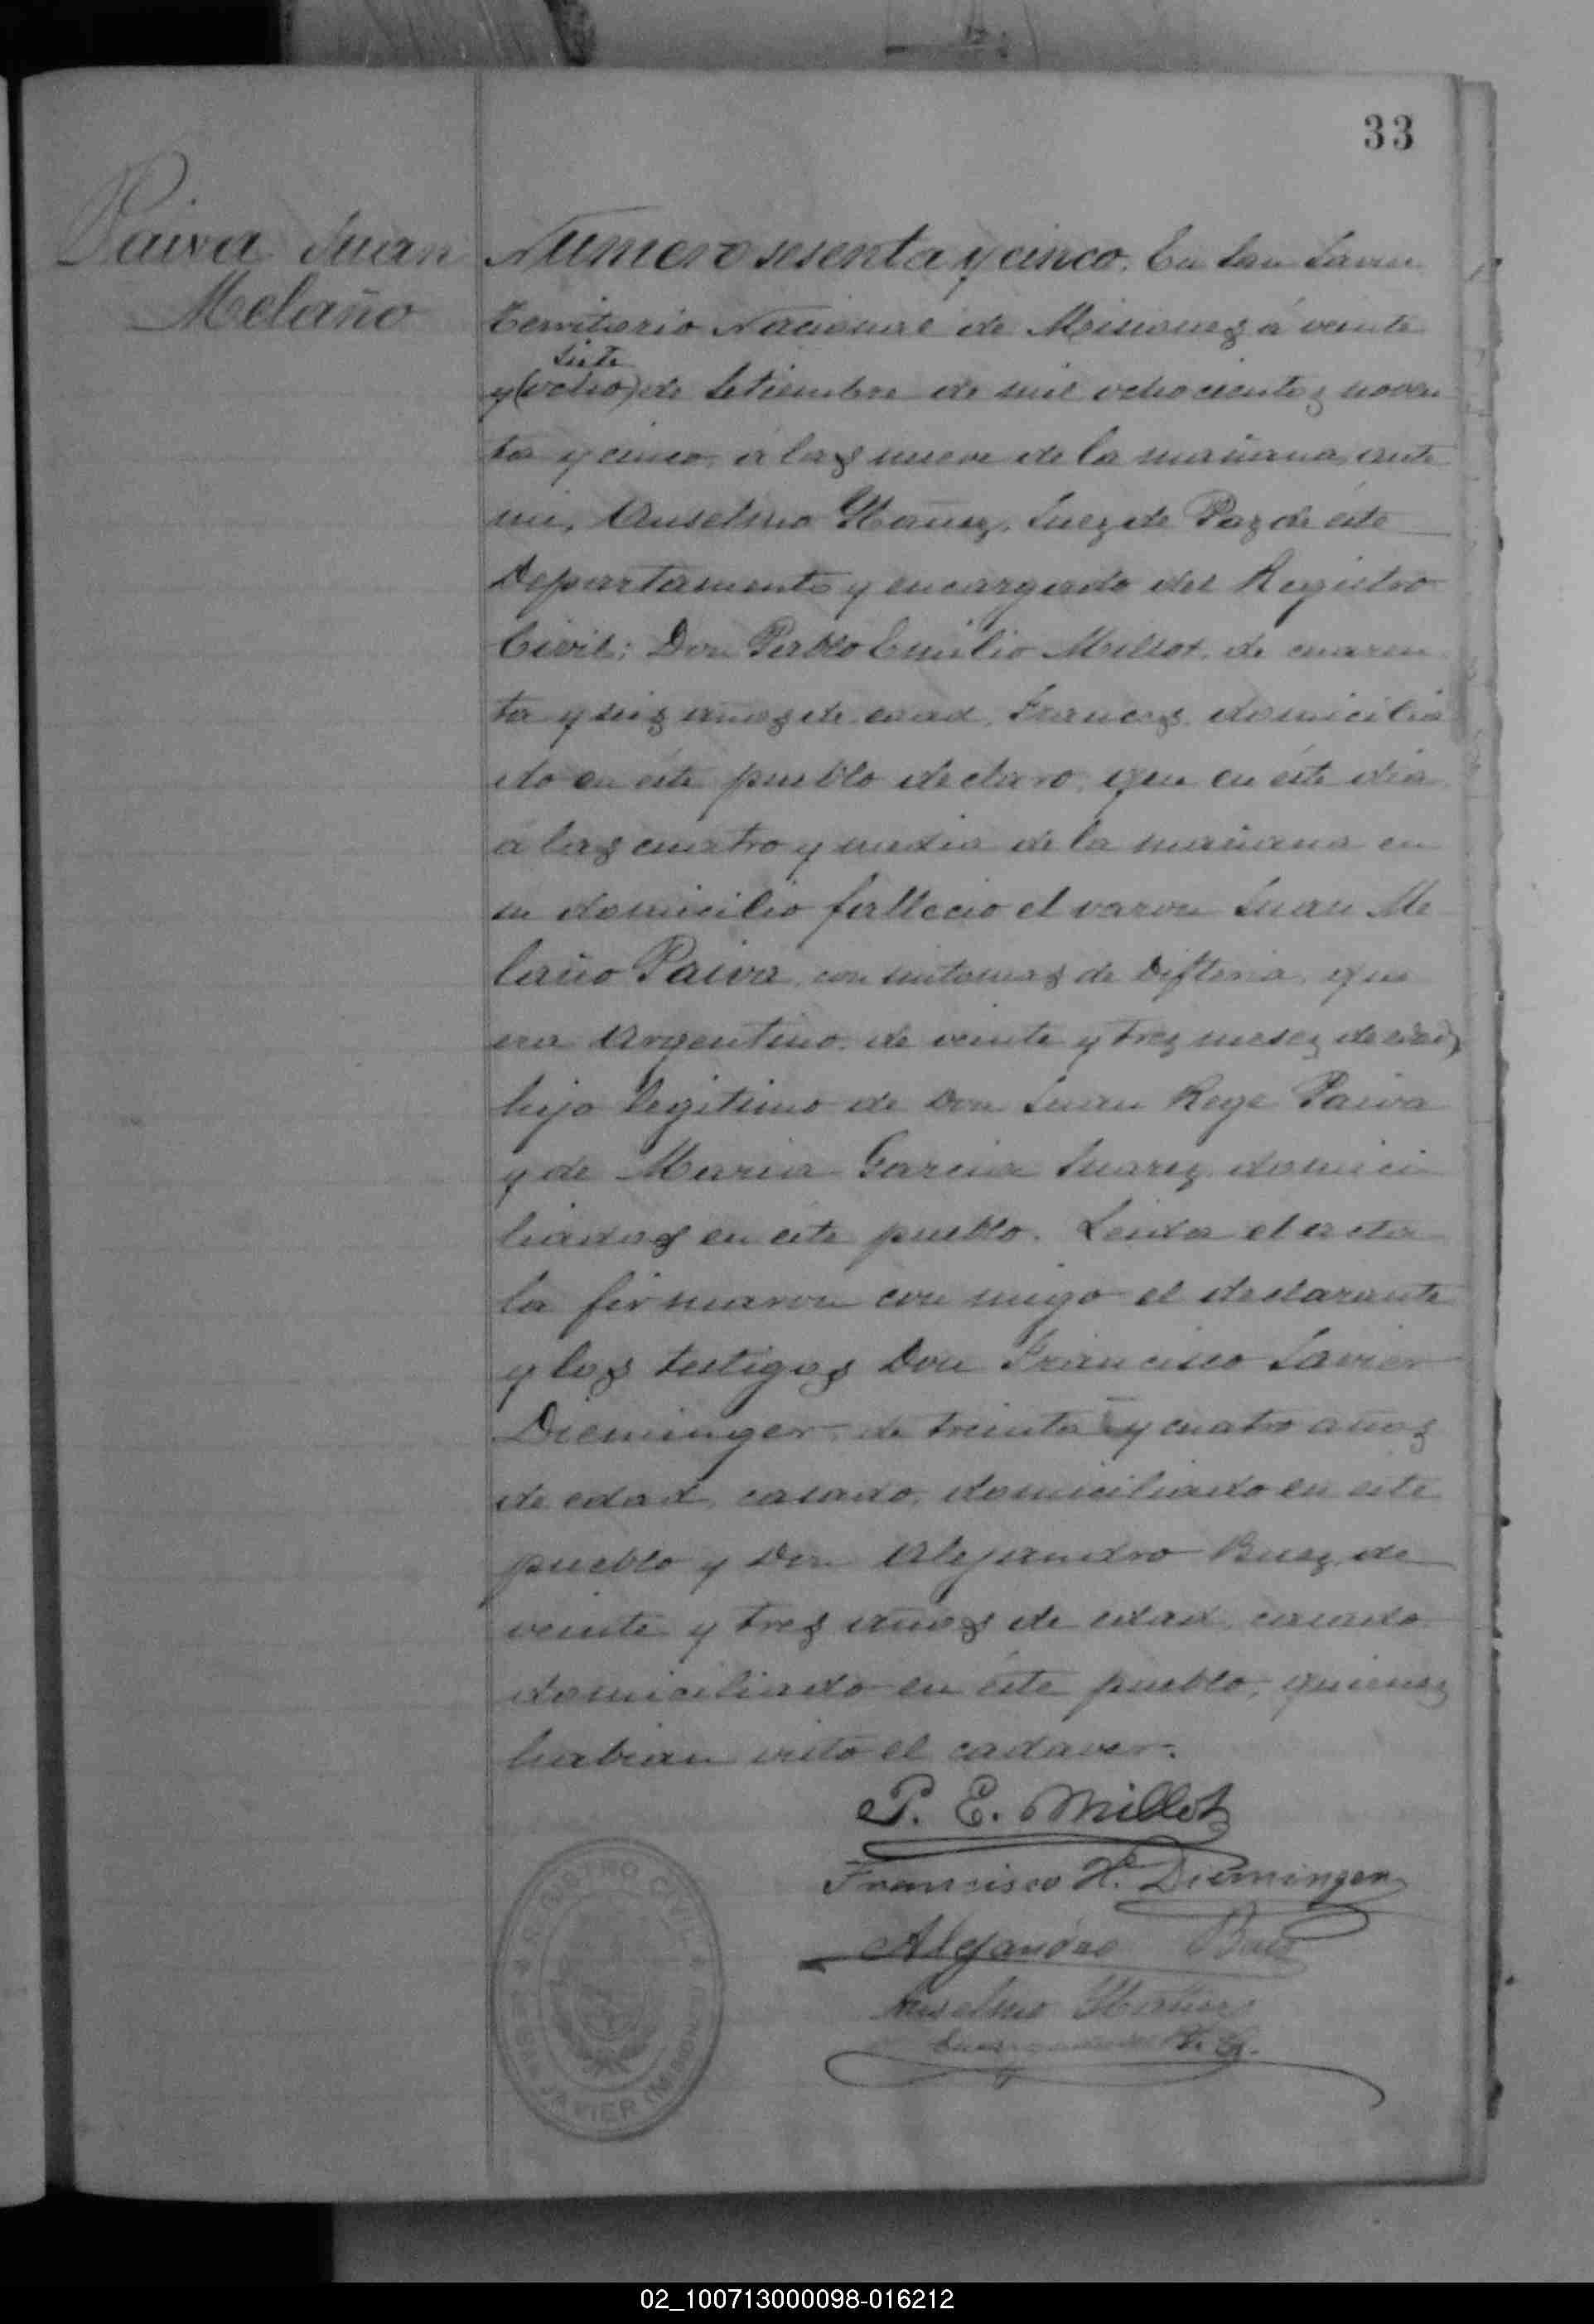 33
Paiva Juan
Melaño
Numero sesenta y cinco. En San Javier
Territorio Nacional de Misiones á veinte
siete
y (ocho) de Setiembre de mil ochocientos noven
ta y cinco, á las nueve de la mañana, ante
mi, Anselmo Ybañez, Juez de Paz de éste
Departamento y encargado del Registro
Civil; Don Pablo Emilio Millot, de cuaren
ta y seis años de edad, Frances, domicilia
do en éste pueblo declaro, que en éste dia
a las cuatro y media de la mañana en
su domicilio fallecio el varon Juan Me
laño Paiva, con sintomas de Difteria, que
era Argentino, de veinte y tres meses de edad,
hijo legitimo de Don Juan Rege Paiva
y de Maria Garcia Suarez domici
liados en éste pueblo. Leida el acta
la firmaron con migo el declarante
y los testigos Don Francisco Javier
Dieminger, de treinta y cuatro años
de edad, casado, domiciliado en éste
pueblo y Don Alejandro Baez, de
veinte y tres años de edad, casado
domiciliado en éste pueblo, quienes
habian visto el cadaver.
P. E. Millot
Francisco X. Dieminger
Alejandro Baez
Anselmo Ybañez
REGISTRO CIVIL
SAN JAVIER (MISIONES)
02_100713000098-016212